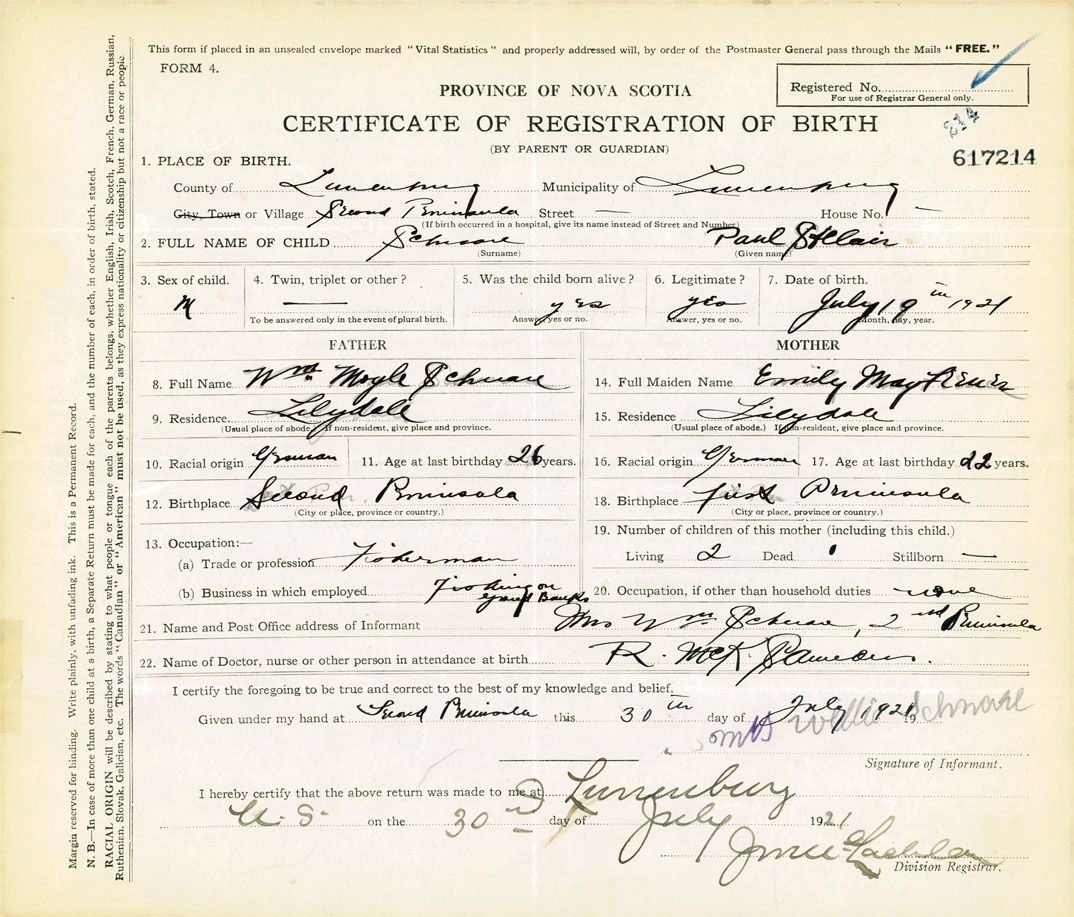 This form if placed in an unsealed envelope marked "Vital Statistics" and properly addressed will, by order of the Postmaster General pass through the Mails "FREE."
FORM 4.
Registered No.
For use of Registrar General only.
PROVINCE OF NOVA SCOTIA
CERTIFICATE OF REGISTRATION OF BIRTH
214
(BY PARENT OR GUARDIAN)
617214
1. PLACE OF BIRTH.
County of Lunenburg Municipality of Lunenburg
City, Town or Village Second Peninsula Street — House No. —
(If birth occurred in a hospital, give its name instead of Street and Number)
2. FULL NAME OF CHILD Schnare Paul StClair
(Surname) (Given name)
3. Sex of child. 4. Twin, triplet or other? 5. Was the child born alive? 6. Legitimate? 7. Date of birth.
M — yes yes July 19th 1921
To be answered only in the event of plural birth. Answer, yes or no. Answer, yes or no. Month, day, year.
FATHER MOTHER
8. Full Name Wm. Moyle Schnare 14. Full Maiden Name Emily May
9. Residence Lilydale 15. Residence Lilydale
(Usual place of abode.) If non-resident, give place and province. (Usual place of abode.) If non-resident, give place and province.
10. Racial origin German 11. Age at last birthday 26 years. 16. Racial origin German 17. Age at last birthday 22 years.
12. Birthplace Second Peninsula 18. Birthplace First Peninsula
(City or place, province or country.) (City or place, province or country.)
13. Occupation:— 19. Number of children of this mother (including this child.)
(a) Trade or profession Fisherman Living 2 Dead Stillborn —
(b) Business in which employed Fishing on Grand Banks 20. Occupation, if other than household duties none
21. Name and Post Office address of Informant Mrs Wm Schnare, 2nd Peninsula
22. Name of Doctor, nurse or other person in attendance at birth R. McK. Saunders.
I certify the foregoing to be true and correct to the best of my knowledge and belief.
Given under my hand at Second Peninsula this 30th day of July 1921 19
Mrs Willie Schnare
Signature of Informant.
I hereby certify that the above return was made to me at Lunenburg
N. S. on the 30 day of July 1921
Division Registrar.
Margin reserved for binding. Write plainly, with unfading ink. This is a Permanent Record.
N. B.—In case of more than one child at a birth, a Separate Return must be made for each, and the number of each, in order of birth, stated.
RACIAL ORIGIN will be described by stating to what people or tongue each of the parents belongs, whether English, Irish, Scotch, French, German, Russian,
Ruthenian, Slovak, Galician, etc. The words "Canadian" or "American" must not be used, as they express nationality or citizenship but not a race or people